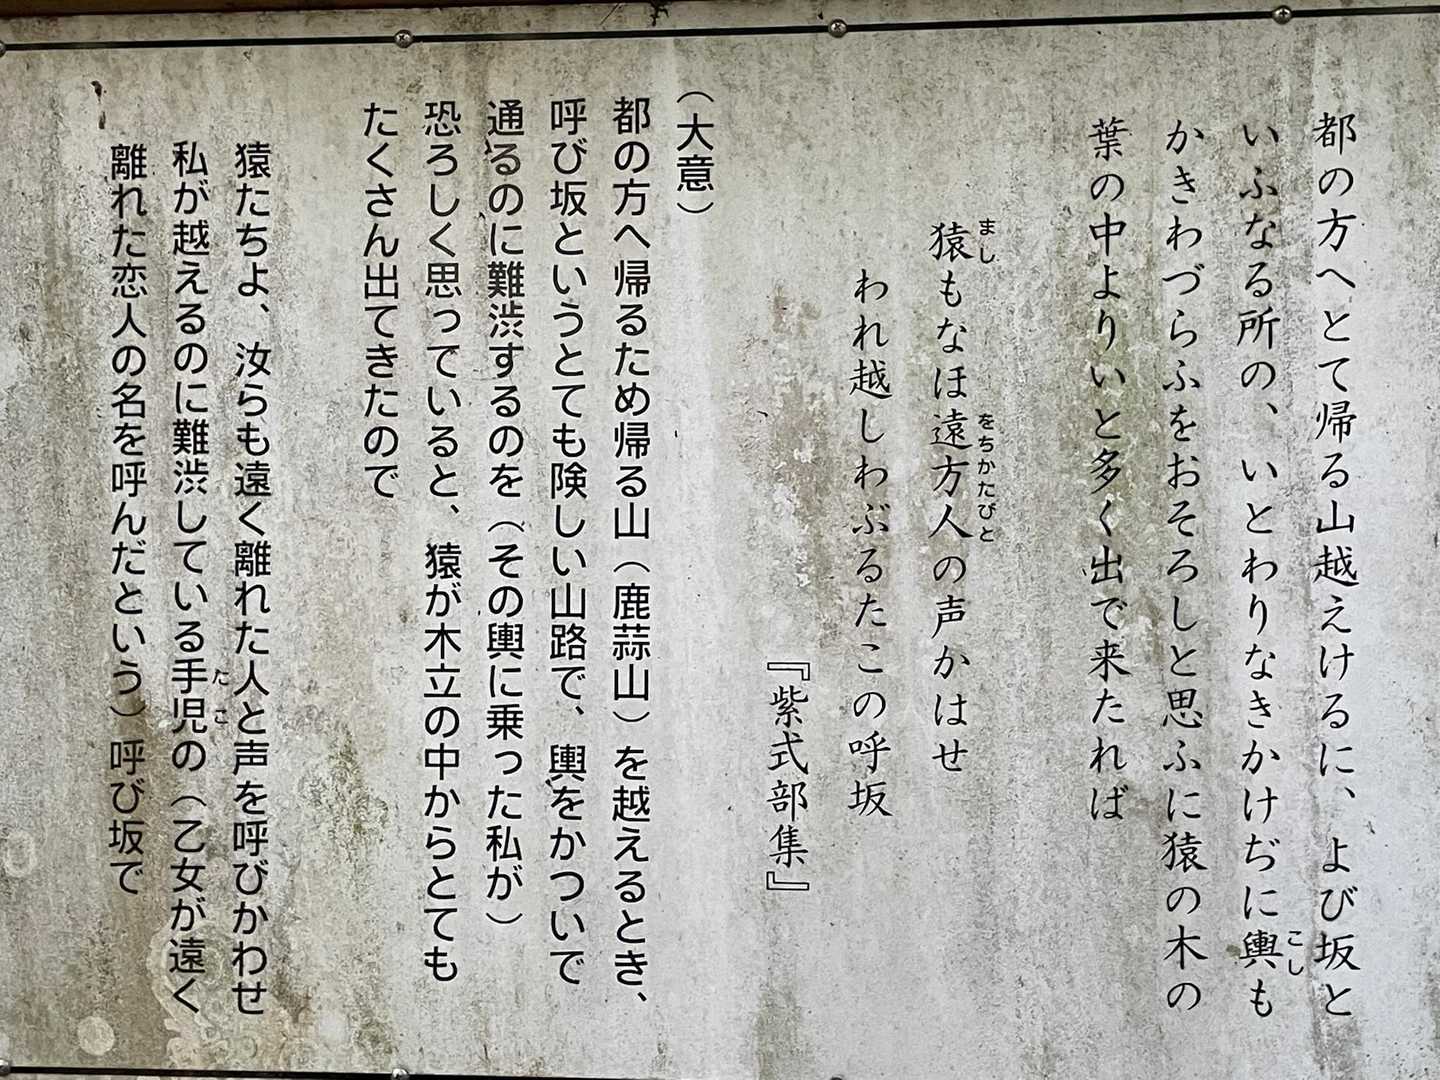 都の方へとて帰る山越えけるに、よび坂と
いふなる所の、いとわりなきかけぢに輿も
こし
かきわづらふをおそろしと思ふに猿の木の
葉の中よりいと多く出で来たれば
猿もなほ遠方人の声かはせ
まし
をちかたびと
われ越しわぶるたこの呼坂
『紫式部集』
（大意）
都の方へ帰るため帰る山（鹿蒜山）を越えるとき、
呼び坂というとても険しい山路で、輿をかついで
通るのに難渋するのを（その輿に乗った私が）
恐ろしく思っていると、猿が木立の中からとても
たくさん出てきたので
猿たちよ、汝らも遠く離れた人と声を呼びかわせ
私が越えるのに難渋している手児の（乙女が遠く
たこ
離れた恋人の名を呼んだという）呼び坂で